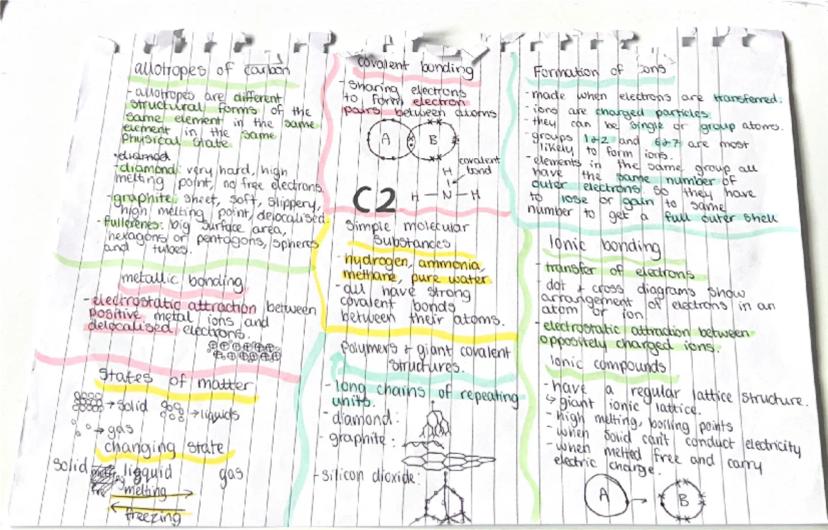 allotropes of carbon
- allotropes are different
structural forms of the
same element in the same
element in the same
physical state.
- diamond: very hard, high
melting point, no free electrons
- graphite: sheet, soft, slippery,
high melting point, delocalised
- fullerenes: big surface area,
hexagons or pentagons, spheres
and tubes.
metallic bonding
- electrostatic attraction between
positive metal ions and
delocalised electrons.
States of matter
→ solid → liquids
→ gas
changing state
solid liqquid gas
melting
freezing
covalent bonding
- sharing electrons
to form electron
pairs between atoms
A B
covalent
bond
H
H - N - H
C2
Simple molecular
substances
- hydrogen, ammonia,
methane, pure water
- all have strong
covalent bonds
between their atoms.
polymers + giant covalent
structures.
- long chains of repeating
units.
- diamond:
- graphite:
- silicon dioxide:
Formation of ions
- made when electrons are transferred.
- ions are charged particles
- they can be single or group atoms.
- groups 1+2 and 6+7 are most
likely to form ions.
- elements in the same group all
have the same number of
outer electrons so they have
to lose or gain to same
number to get a full outer shell
Ionic bonding
- transfer of electrons
- dot + cross diagrams show
arrangement of electrons in an
atom or ion
- electrostatic attraction between
oppositely charged ions.
Ionic compounds
- have a regular lattice structure.
↳ giant ionic lattice.
- high melting, boiling points
- when solid can't conduct electricity
- when melted free and carry
electric charge.
A → B